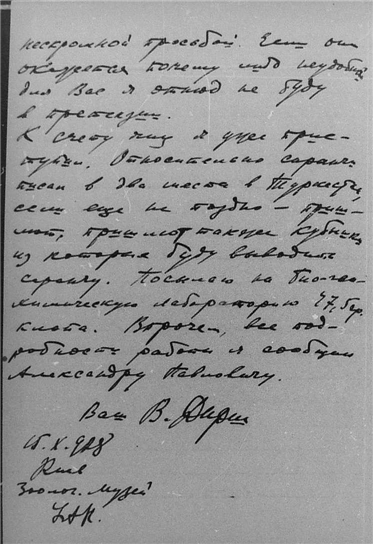 нескромной просьбой. Если она
окажется почему либо неудобной
для Вас я отнюд не буду
в претензии.
К счету яиц я уже прис-
тупил. Относительно саранчи
писал в два места в Туркестан,
если еще не поздно – приш-
лют, пришлют также кубышки
из которых буду выводить
саранчу. Посылаю на био-гео-
химическую лабораторию 47,
Впрочем, все под-
робности работы я сообщил
Александру Павловичу.
Ваш В.
15.X.928
Киев
Зоолог. Музей